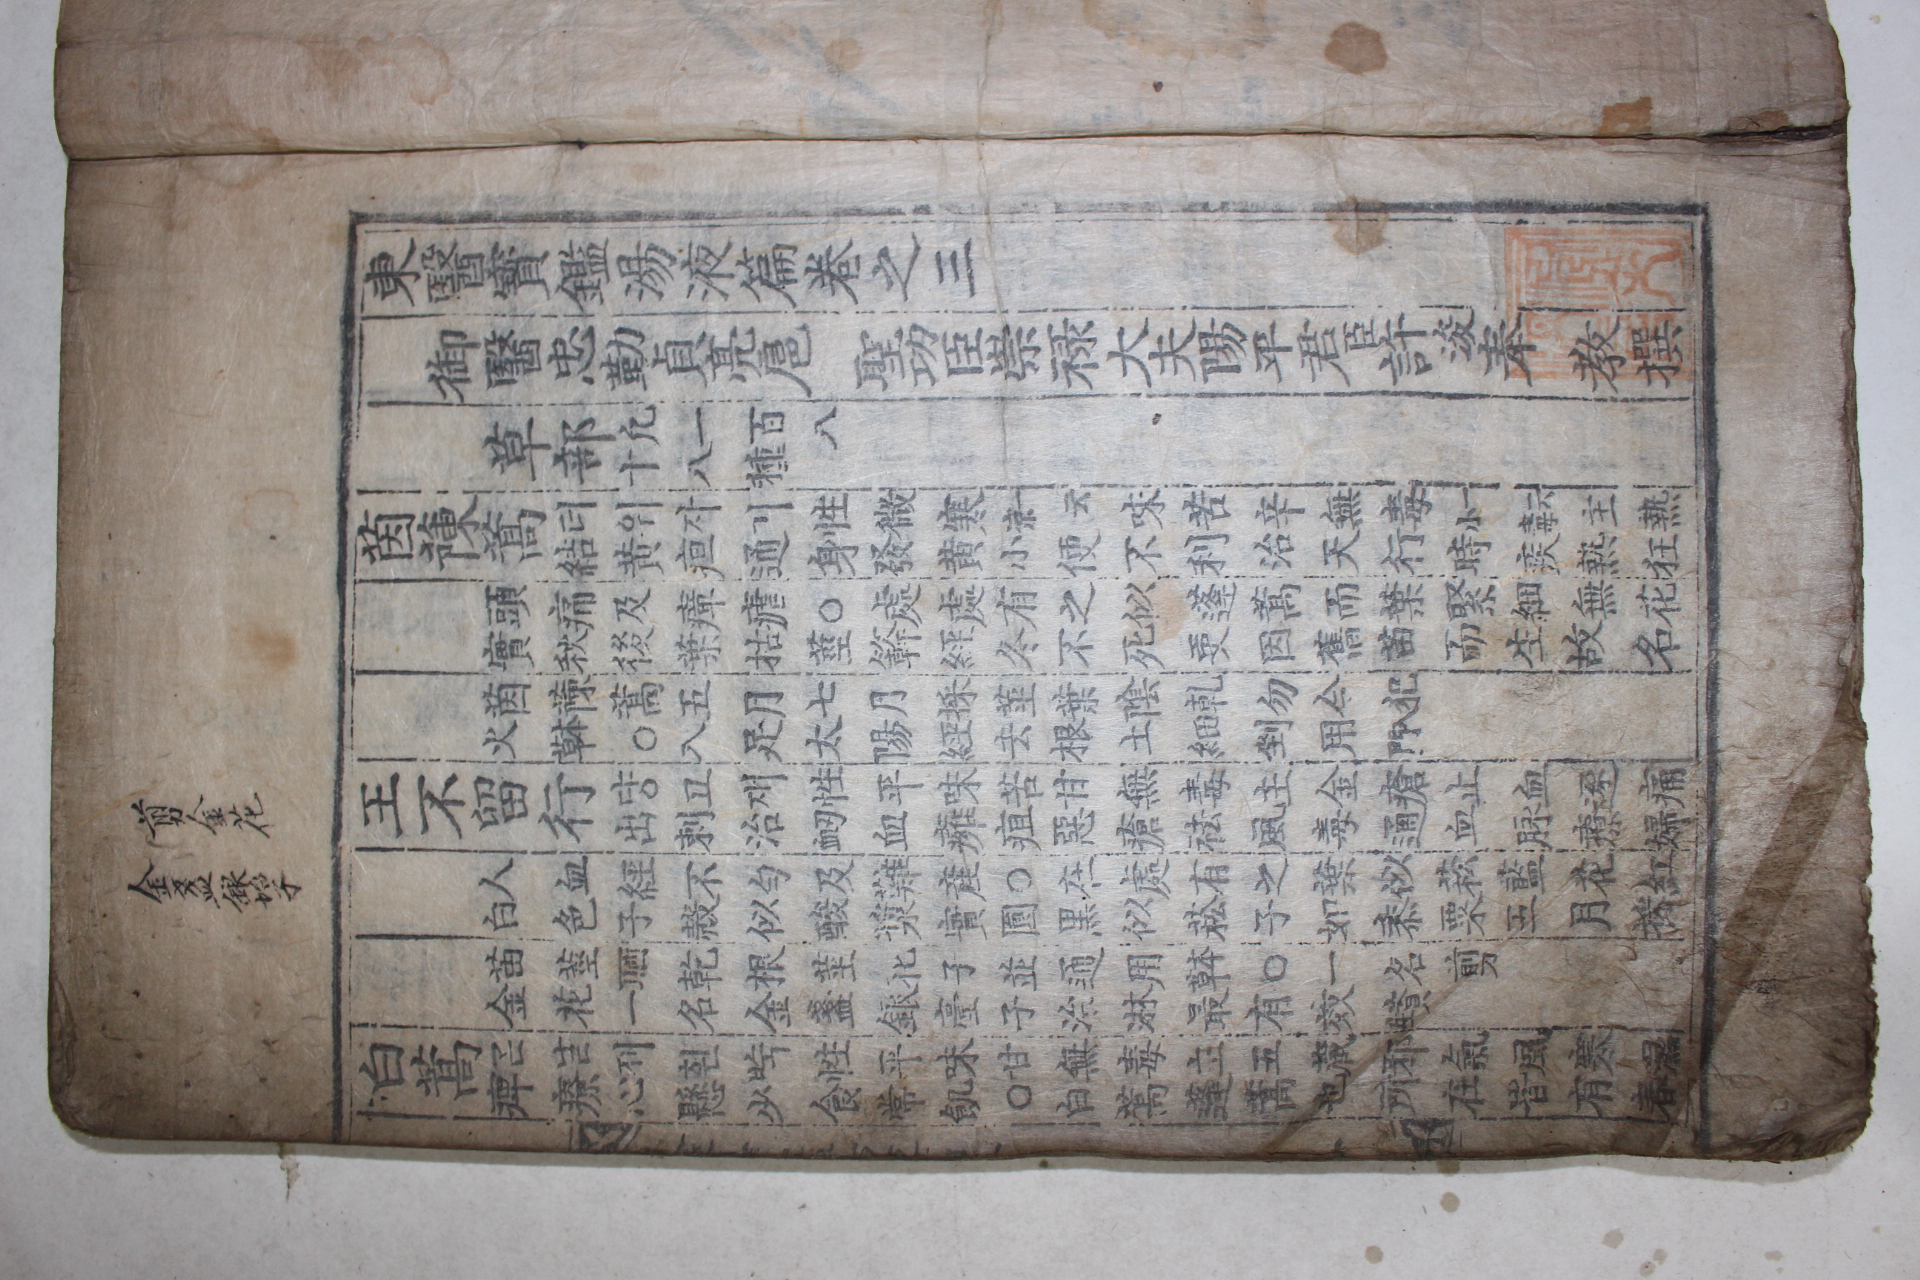 剪金花
金盞銀坮子
東醫寶鑑湯液篇卷之三
御醫忠勤貞亮扈 聖功臣崇祿大夫陽平君臣許浚奉 敎撰
草部
凢一百八
十八種
茵蔯蒿
더위자기性微寒一云凉味苦辛無毒一云小毒主熱
結黃疸通身發黃小便不利治天行時疾熱狂
頭痛及瘴瘧○處處有之似蓬蒿而葉緊細無花
實秋後葉枯莖簳經冬不死更因舊苗而生故名
茵蔯蒿五月七月採莖葉陰乾勿令犯
火本草○入足太陽經去根土細剉用入門
王不留行
댱고재性平味苦甘無毒主金瘡止血逐痛
出刺治衂血癰疽惡瘡祛風毒通血脉療婦
人血經不勻及難産○在處有之葉似菘藍花紅
白色子殼似酸漿實圓黑似菘子如黍粟五月採
苗莖晒乾根莖花子並通用本草○一名剪
金花一名金盞銀臺子治淋最有效資生
白蒿
性平味甘無毒主五藏邪氣風寒濕
痺療心懸少食常飢○白蒿蓬蒿也所在皆有春